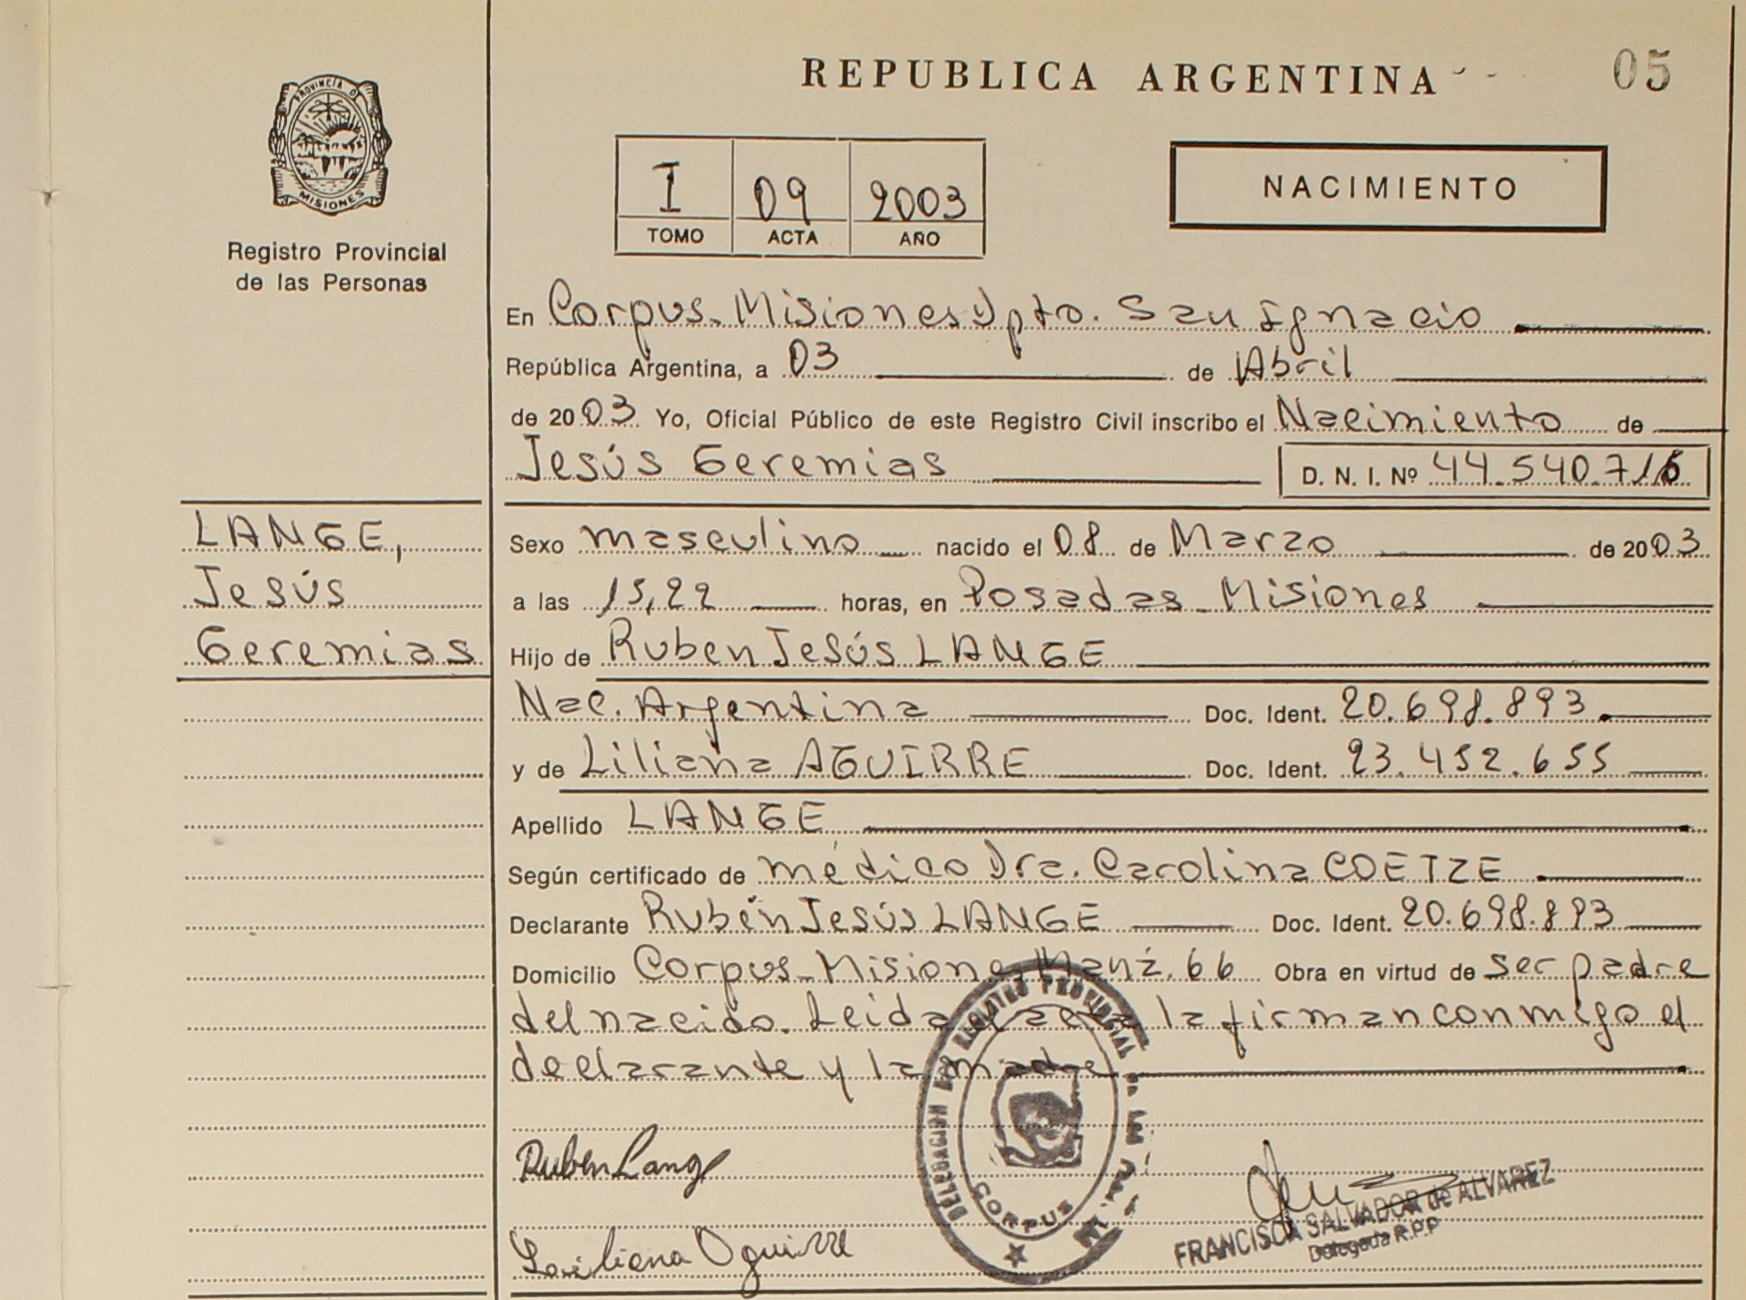 REPUBLICA ARGENTINA
05
PROVINCIA DE
MISIONES
Registro Provincial
de las Personas
I 09 2003
TOMO ACTA AÑO
NACIMIENTO
En Corpus - Misiones Dpto. San Ignacio
República Argentina, a 03 de Abril
de 2003 Yo, Oficial Público de este Registro Civil inscribo el Nacimiento de
Jesús Geremias D. N. I. Nº 44.540.716
LANGE,
Jesús
Geremias
Sexo masculino nacido el 08 de Marzo de 2003
a las 15,22 horas, en Posadas - Misiones
Hijo de Ruben Jesús LANGE
Nac. Argentina Doc. Ident. 20.698.893
y de Liliana AGUIRRE Doc. Ident. 23.452.655
Apellido LANGE
Según certificado de médico Dra. Carolina COETZE
Declarante Rubén Jesús LANGE Doc. Ident. 20.698.893
Domicilio Corpus - Misiones Manz. 66 Obra en virtud de ser padre
del nacido. Leida el acta la firman conmigo el
declarante y la madre
DELEGACION REGISTRO PROVINCIAL DE LAS
CORPUS
Ruben Lange
Liliana Aguirre
FRANCISCA SALVADOR de ALVAREZ
Delegada R.P.P